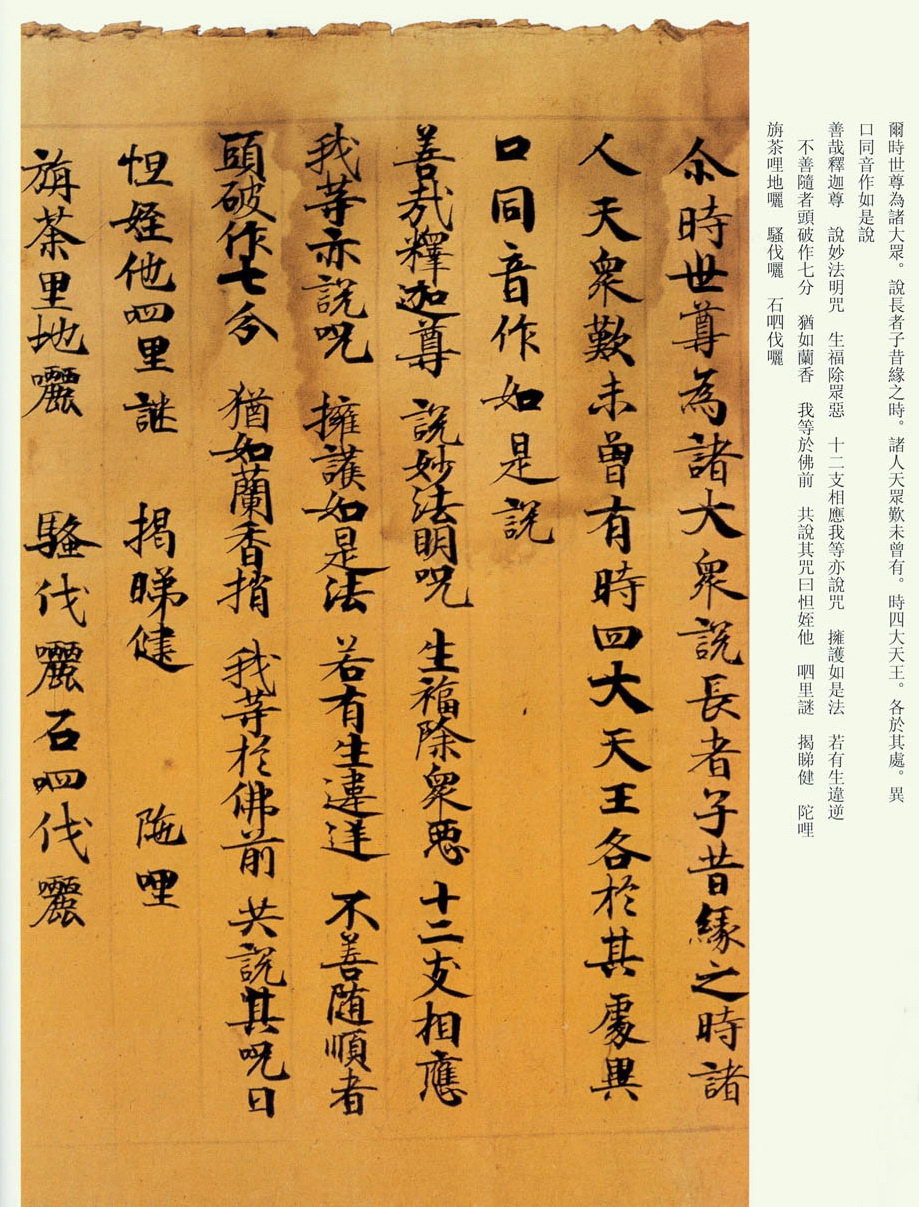 爾時世尊為諸大眾。說長者子昔緣之時。諸人天眾歎未曾有。時四大天王。各於其處。異
口同音作如是說
善哉釋迦尊　說妙法明咒　生福除眾惡　十二支相應我等亦說咒　擁護如是法　若有生違逆
不善隨者頭破作七分　猶如蘭香　我等於佛前　共說其咒曰怛姪他　呬里謎　揭睇健　陀哩
旃茶哩地囇　騷伐囇　石呬伐囇
尒時世尊為諸大衆說長者子昔緣之時諸
人天衆歎未曾有時四大天王各於其處異
口同音作如是説
善哉釋迦尊　說妙法明呪　生福除衆惡　十二支相應
我等亦說呪　擁護如是法　若有生違逆　不善随順者
頭破作七分　猶如蘭香梢　我等於佛前　共說其呪曰
怛姪他呬里謎　揭睇健　陁哩
旃茶里地囇　騷伐囇石呬伐囇